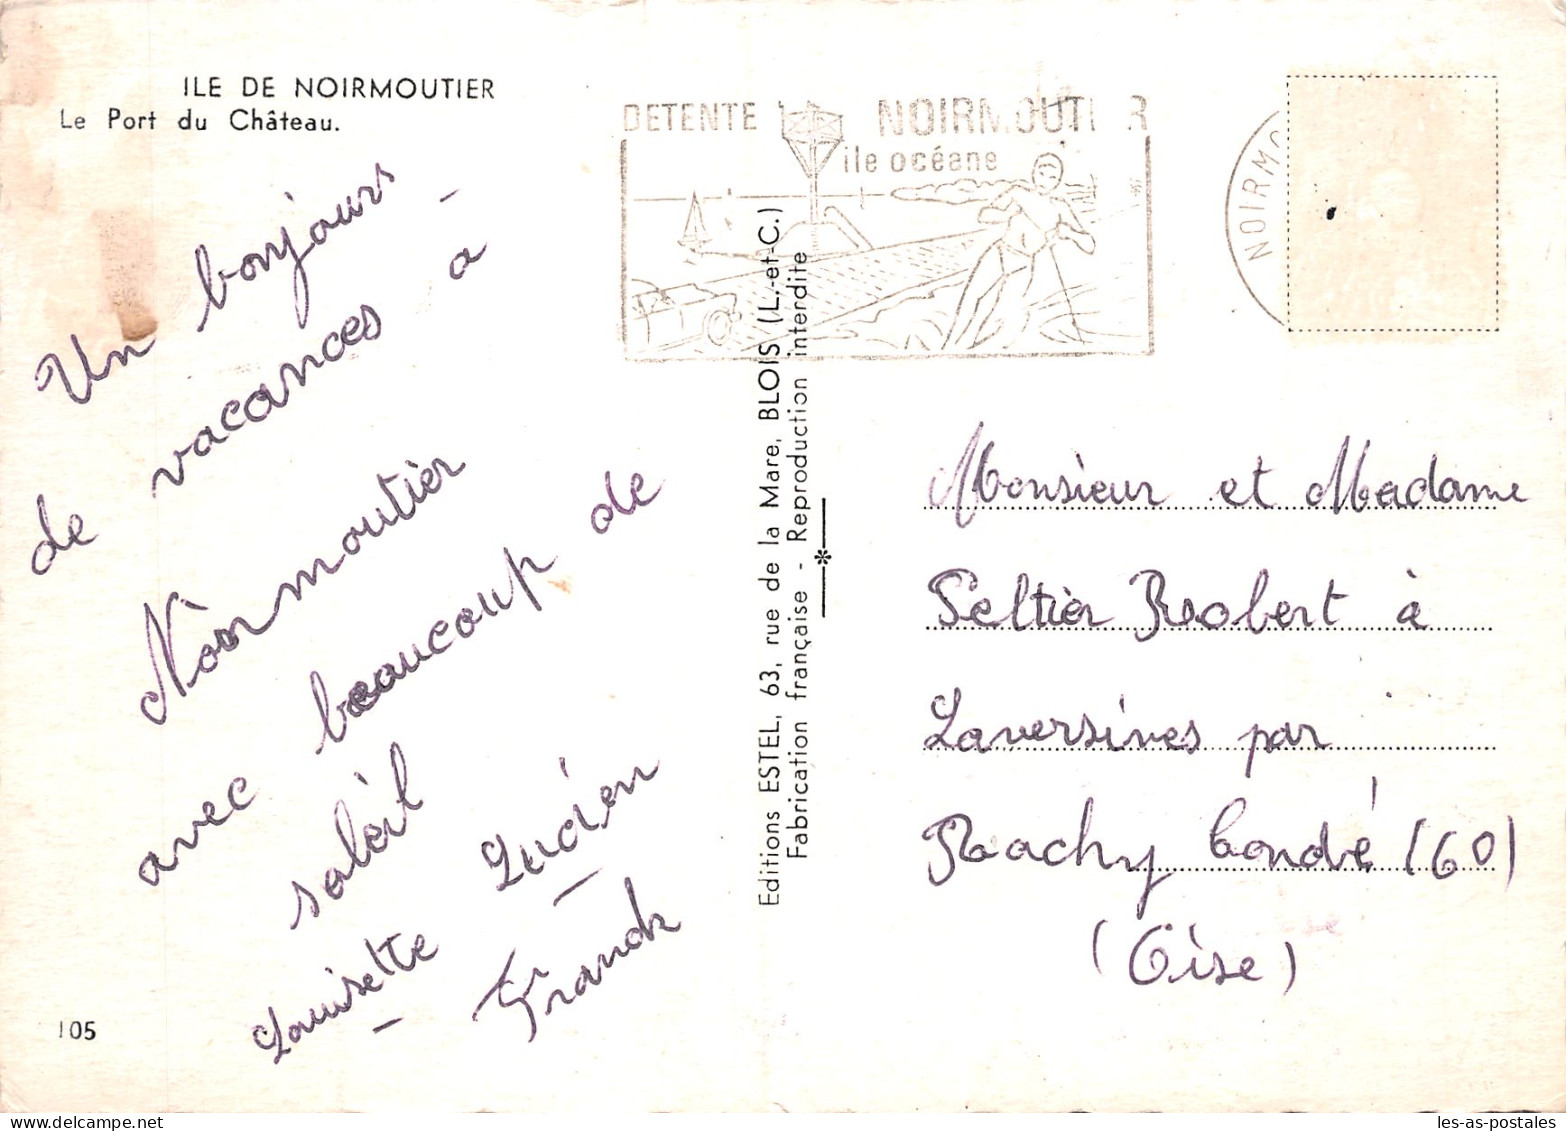 ILE DE NOIRMOUTIER
Le Port du Château.
Un bonjours
de vacances à -
Noirmoutier
avec beaucoup de
soleil
Louisette - Lucien -
Franck
105
Editions ESTEL, 63, rue de la Mare, BLOIS (L.-et-C.)
Fabrication française - Reproduction interdite
DETENTE NOIRMOUTIER
île océane
NOIRMO
Monsieur et Madame
Peltier Robert à
Laversines par
Rachy Condé (60)
(Oise)
les-as-postales